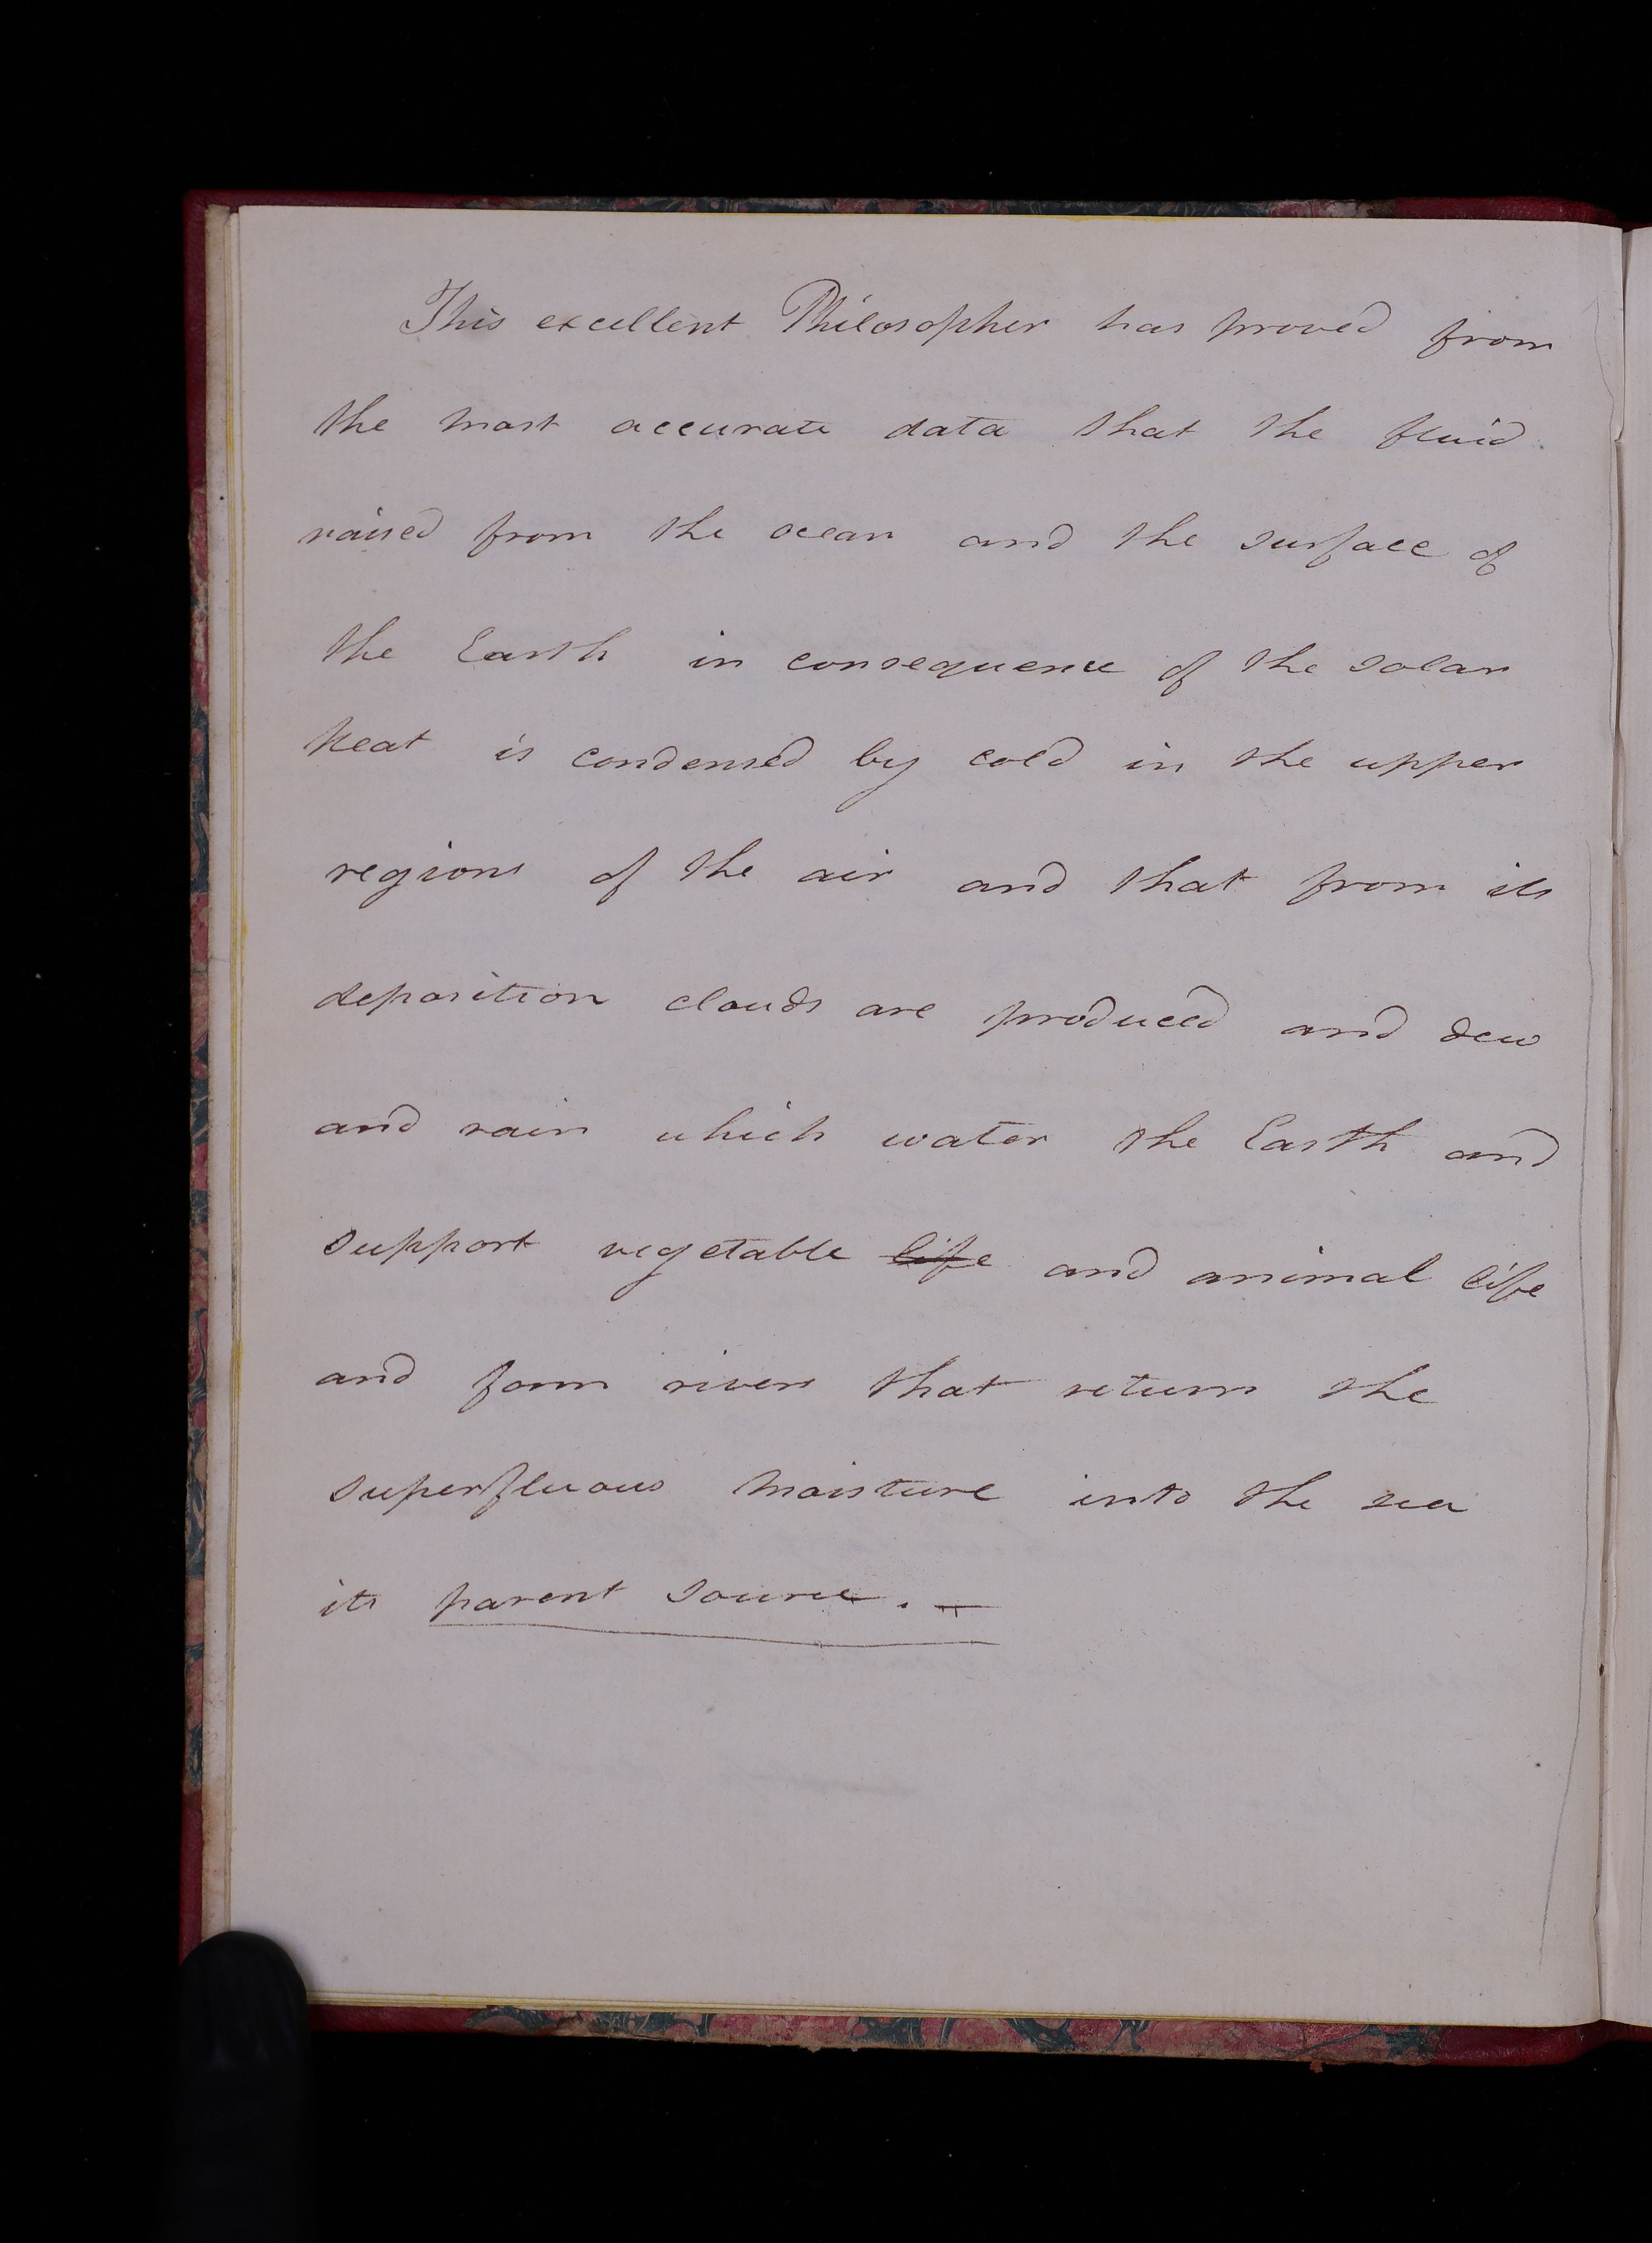 This excellent Philosopher has proved from
the most accurate data that the fluid
raised from the ocean and the surface of
the Earth in consequence of the solar
heat is condensed by cold in the upper
regions of the air and that from its
deposition clouds are produced and dew
and rain which water the Earth and
support vegetable life and animal life
and form rivers that return the
superfluous moisture into the sea
its parent source. —